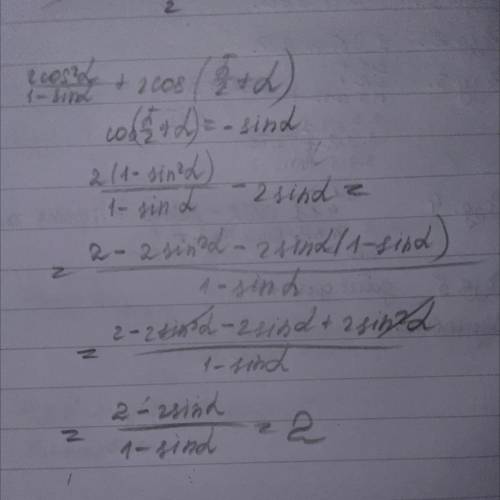 2
2cos²α/1-sinα + 2cos(π/2+α)
cos(π/2+α)=-sinα
2(1-sin²α)/1-sinα - 2sinα =
= 2-2sin²α-2sinα(1-sinα)/1-sinα
= 2-2sin²α-2sinα+2sin²α/1-sinα
= 2-2sinα/1-sinα = 2